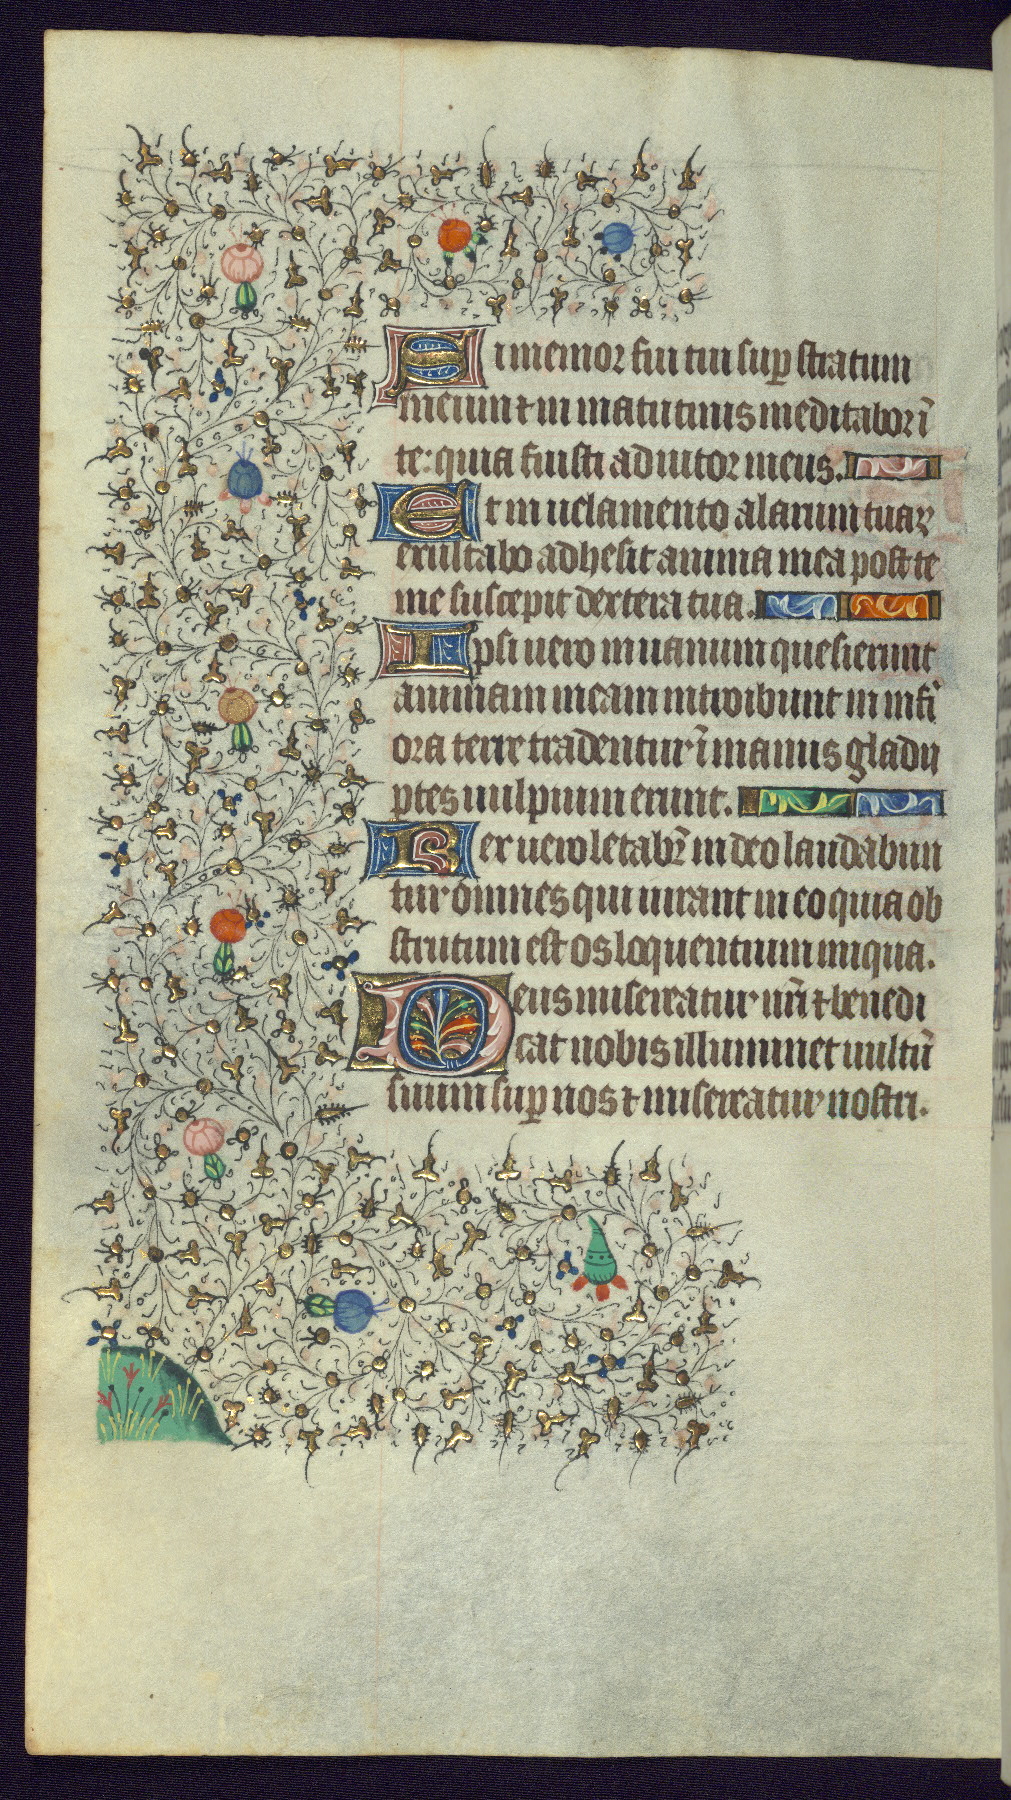 Si memor fui tui sup stratum
meum ⁊ in matutinis meditabor ĩ
te: quia fuisti adiutor meus.
Et in uelamento alarum tuaꝝ
exultabo adhesit anima mea post te
me suscepit dextera tua.
Ipsi uero in uanum quesierunt
animam meam introibunt in infĩ
ora terre tradentur ĩ manus gladii
ptes uulpium erunt.
Rex uero letabr̃ in deo laudabun
tur omnes qui iurant in eo quia ob
strutum est os loquentium iniqua.
Deus misereatur nr̃i ⁊ benedi
cat nobis illuminet uultũ
suum sup nos ⁊ misereatur nostri.